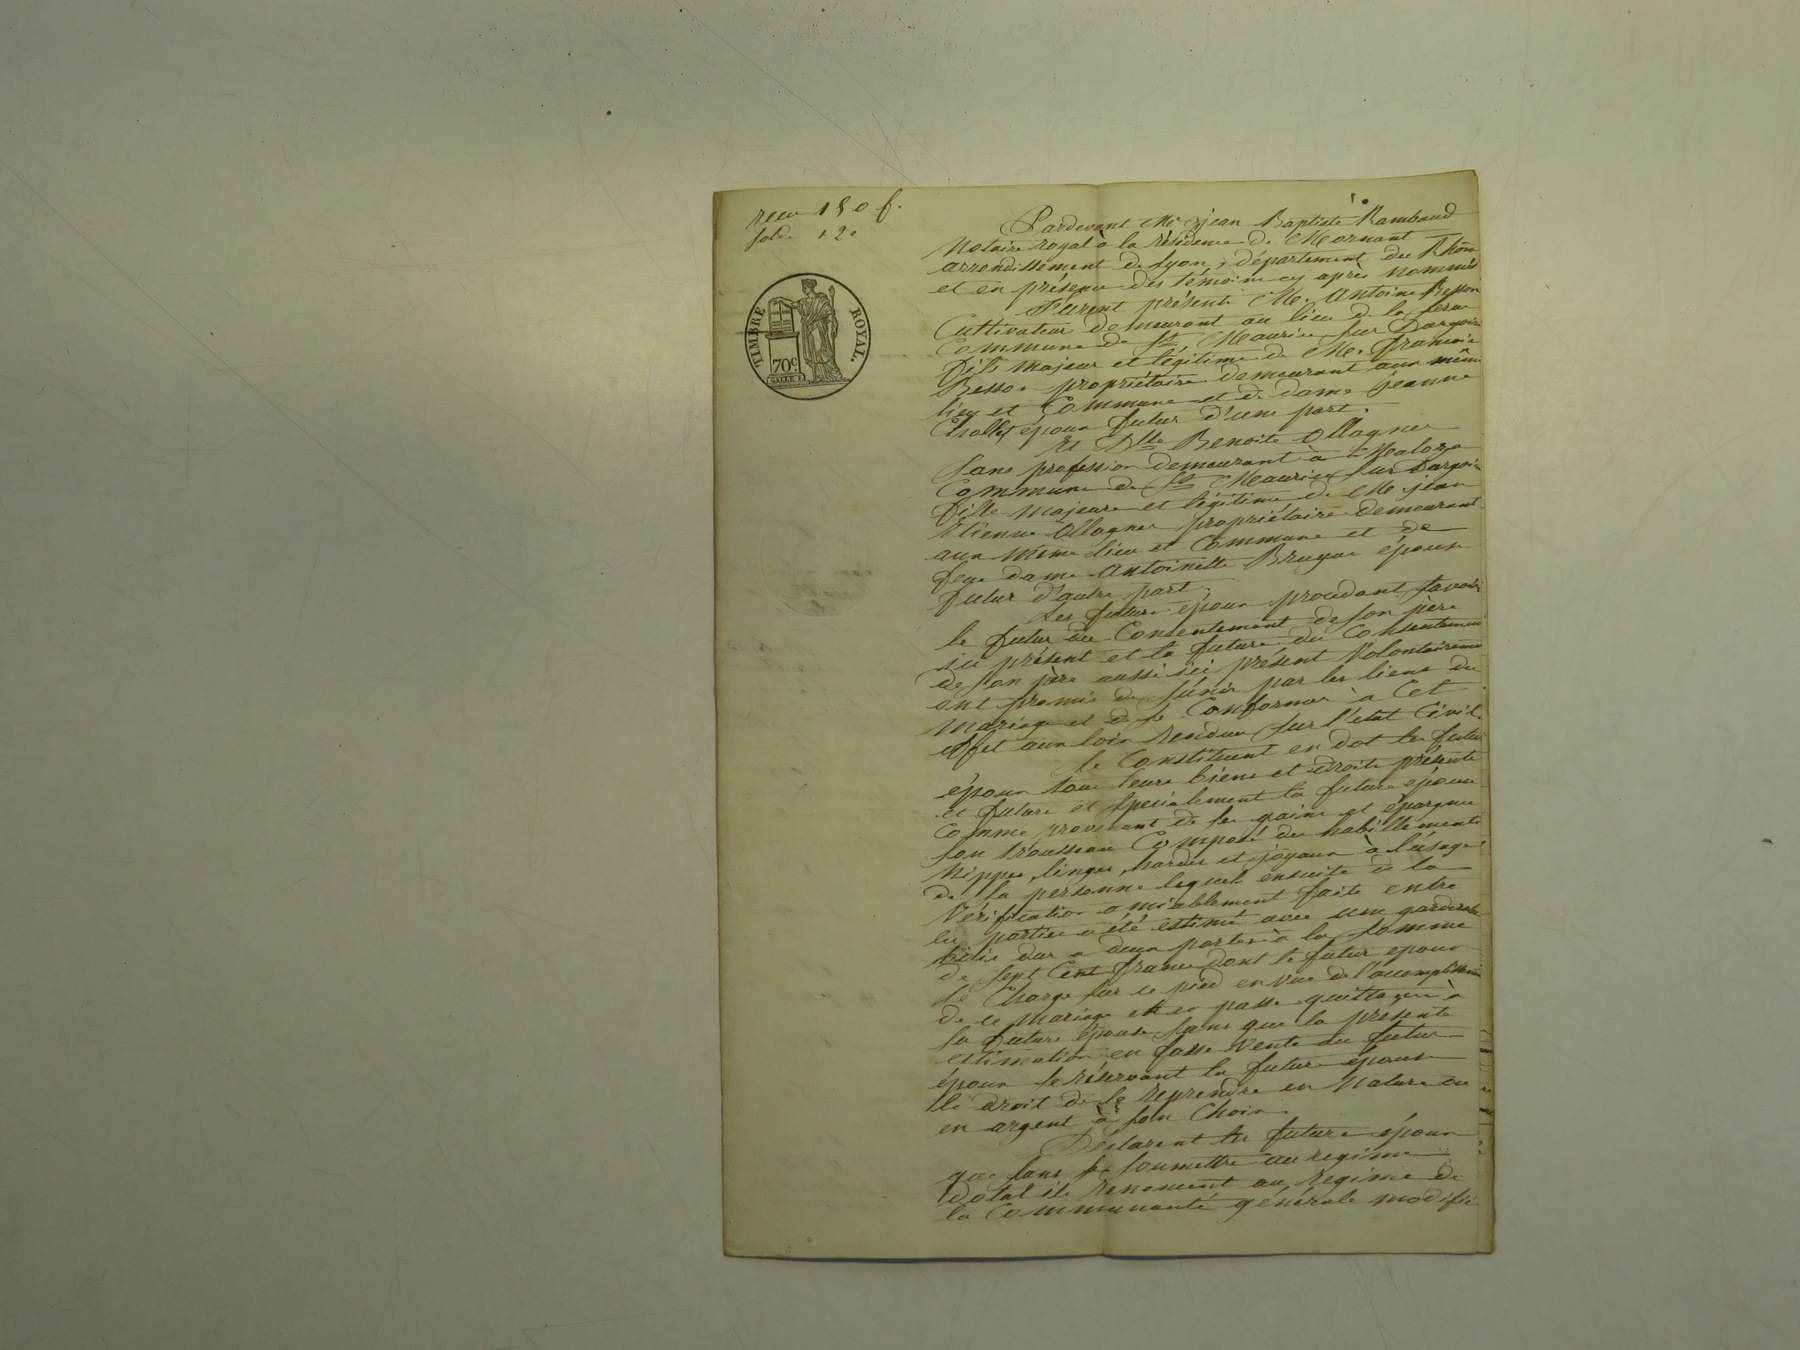 reçu 150 f.
solde 120
TIMBRE ROYAL.
70c
Pardevant Me Jean Baptiste Rambaud
Notaire royal à la résidence de Mornant
arrondissement de Lyon, département du Rhône
et en présence des témoins cy après nommés
Furent présents M. Antoine Besson
Cultivateur demeurant au lieu de la
Commune de St Maurice sur Dargoire
fils majeur et légitime de M. François
Besson propriétaire demeurant aux même
lieu et Commune et de dame Jeanne
Chollet époux futur d'une part.
Et Dlle Benoite Ollagner
sans profession demeurant à Maloza
Commune de St Maurice sur Dargoire
fille majeure et légitime de M. jean
Etienne Ollagner propriétaire demeurant
aux même lieu et Commune et de
feue dame Antoinette Bruyas épouse
future d'autre part.
Les futurs époux procédant savoir
le futur du Consentement de son père
ici présent et la future du Consentement
de son père aussi ici présent Volontairement
ont promis de s'unir par les liens du
mariage et de se Conformer à Cet
effet aux loix rendues sur l'état Civil.
se Constituent en dot les futurs
époux tous leurs biens et droits présents
et futurs et spécialement la future épouse
Comme provenant de ses gains et épargnes
son trousseau Composé des habillements
nippes, linges, hardes et joyaux à l'usage
de sa personne lequel ensuite de la
Vérification amiablement faite entre
les parties a été estimé avec une garderobe
bois dur à deux portes à la somme
de Sept Cent francs dont le futur époux
se Charge sur ce pied en vue de l'accomplissement
de ce mariage et en passe quittance à
la future épouse sans que la présente
estimation en fasse vente au futur
époux se réservant la future épouse
le droit de le reprendre en Nature ou
en argent à son Choix.
Déclarent les futurs époux
que sans se soumettre au régime
dotal ils renoncent au régime de
la Communauté générale modifié